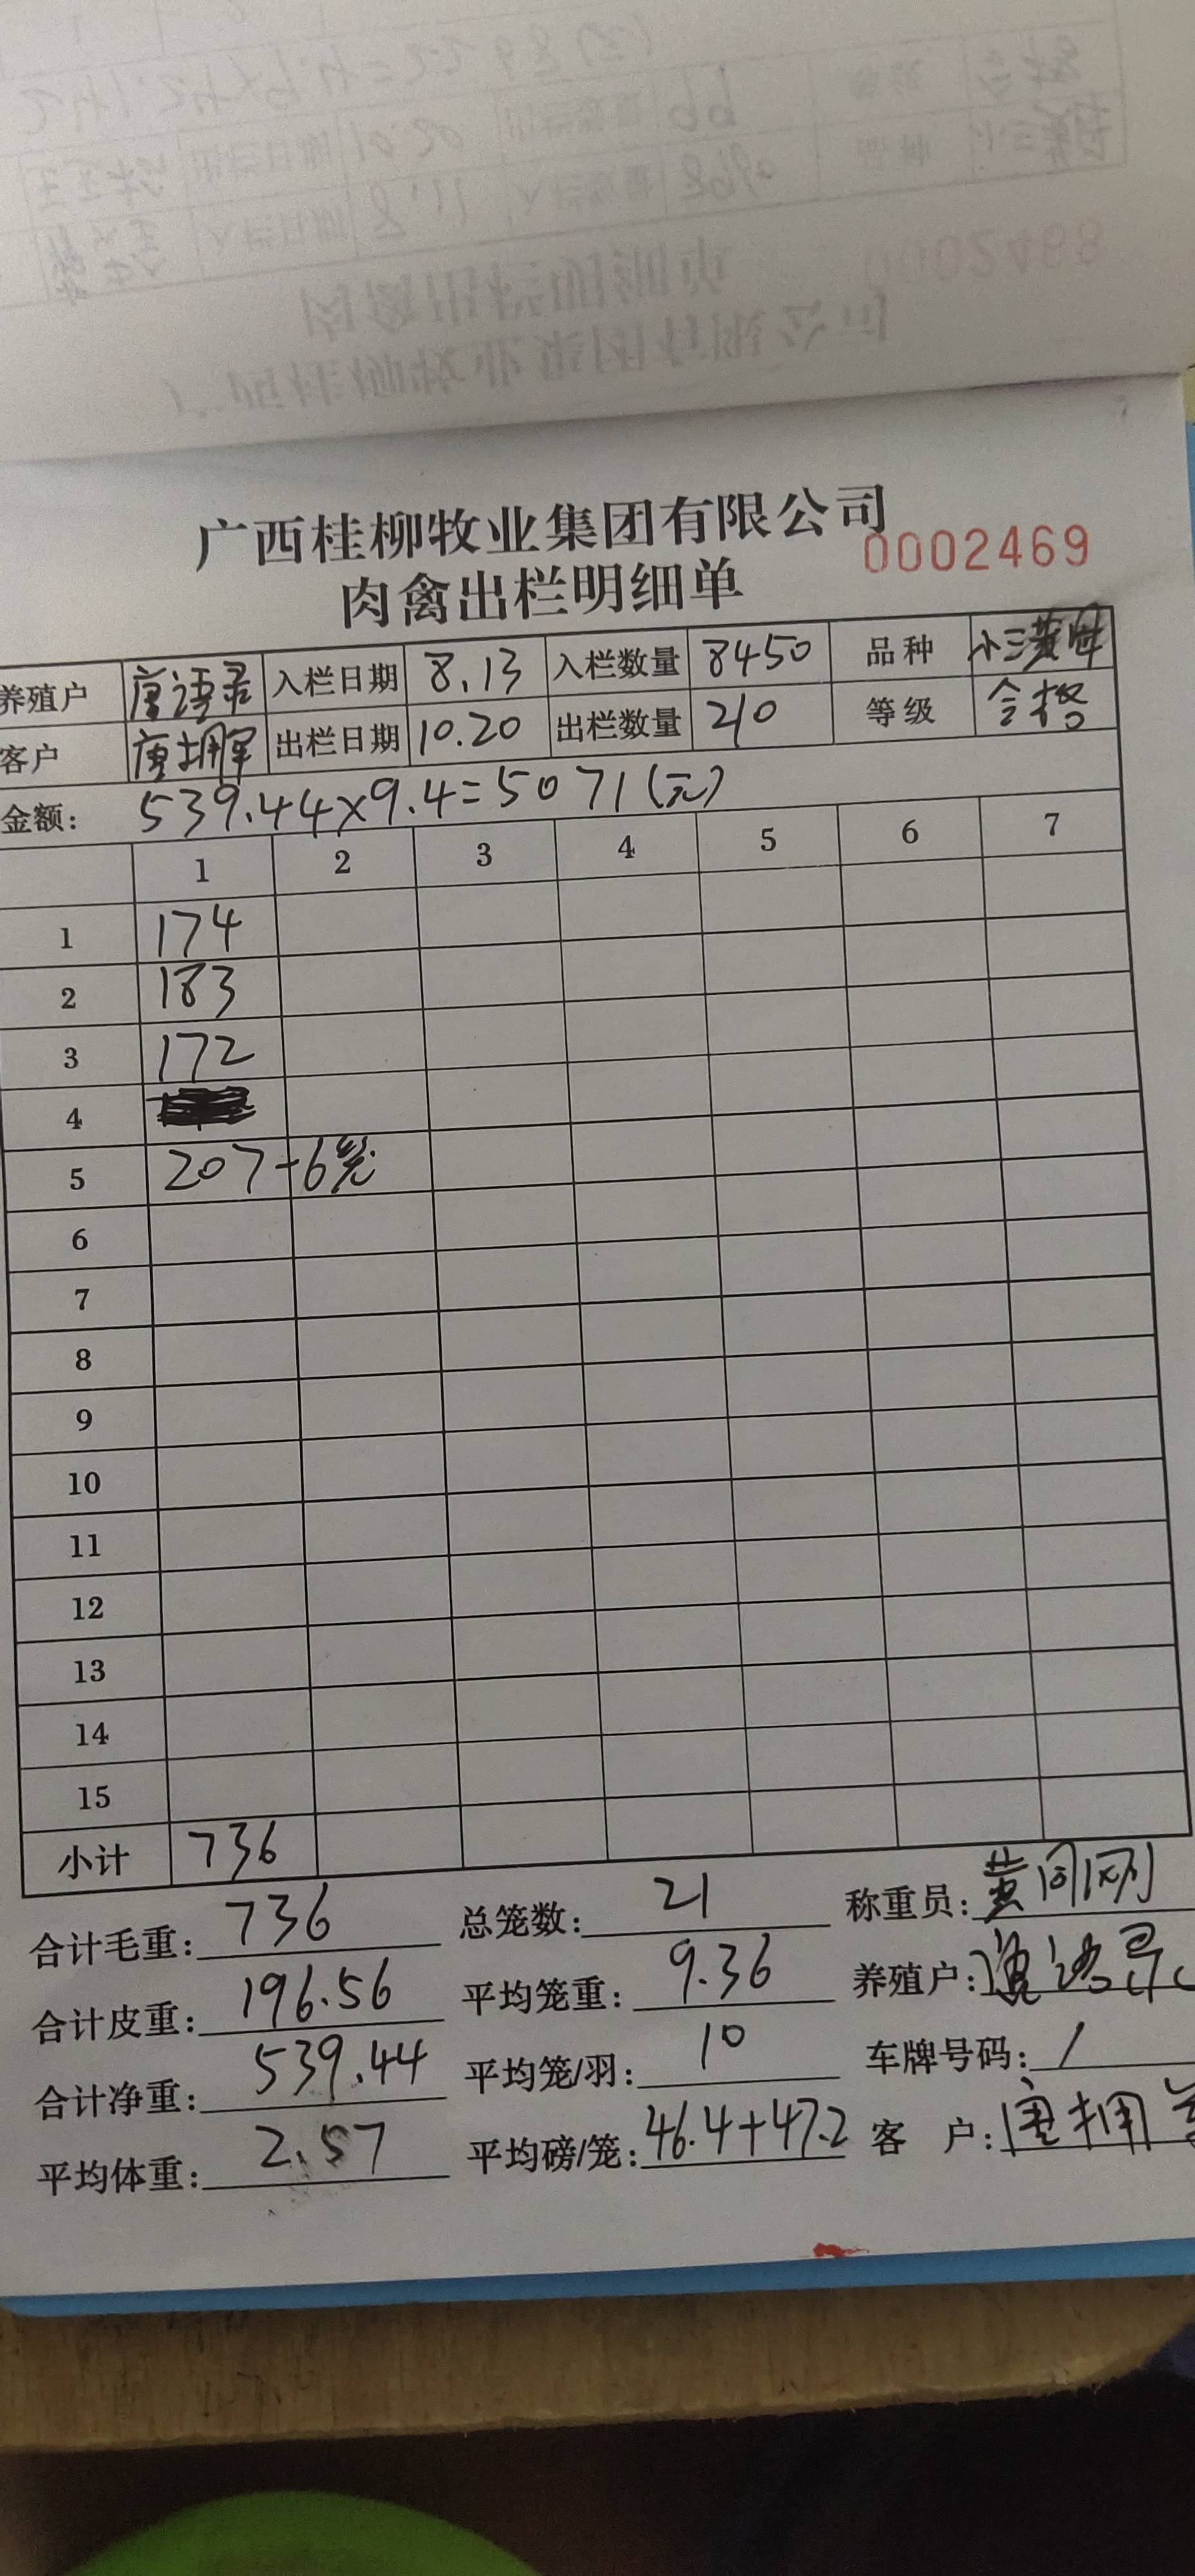 广西桂柳牧业集团有限公司
0002469
肉禽出栏明细单
养殖户 唐语录 入栏日期 8.13 入栏数量 8450 品种 小三黄
客户 唐拥军 出栏日期 10.20 出栏数量 210 等级 合格
金额: 539.44×9.4=5071(元)
1 2 3 4 5 6 7
1 174
2 183
3 172
4
5 207-6笼
6
7
8
9
10
11
12
13
14
15
小计 736
合计毛重: 736 总笼数: 21 称重员: 黄同刚
合计皮重: 196.56 平均笼重: 9.36 养殖户:
合计净重: 539.44 平均笼/羽: 10 车牌号码: /
平均体重: 2.57 平均磅/笼: 46.4+47.2 客 户: 唐拥